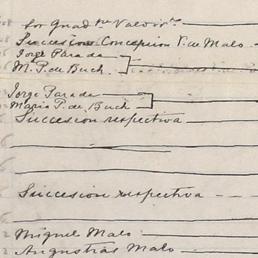 por Guad
Succesion Concepcion V. de Malo
Jorge Parada
M. P. de Buch
Jorge Parada
Maria P. de Buch
Succesion respectiva
Succesion respectiva
Miguel Malo
Angustias Malo